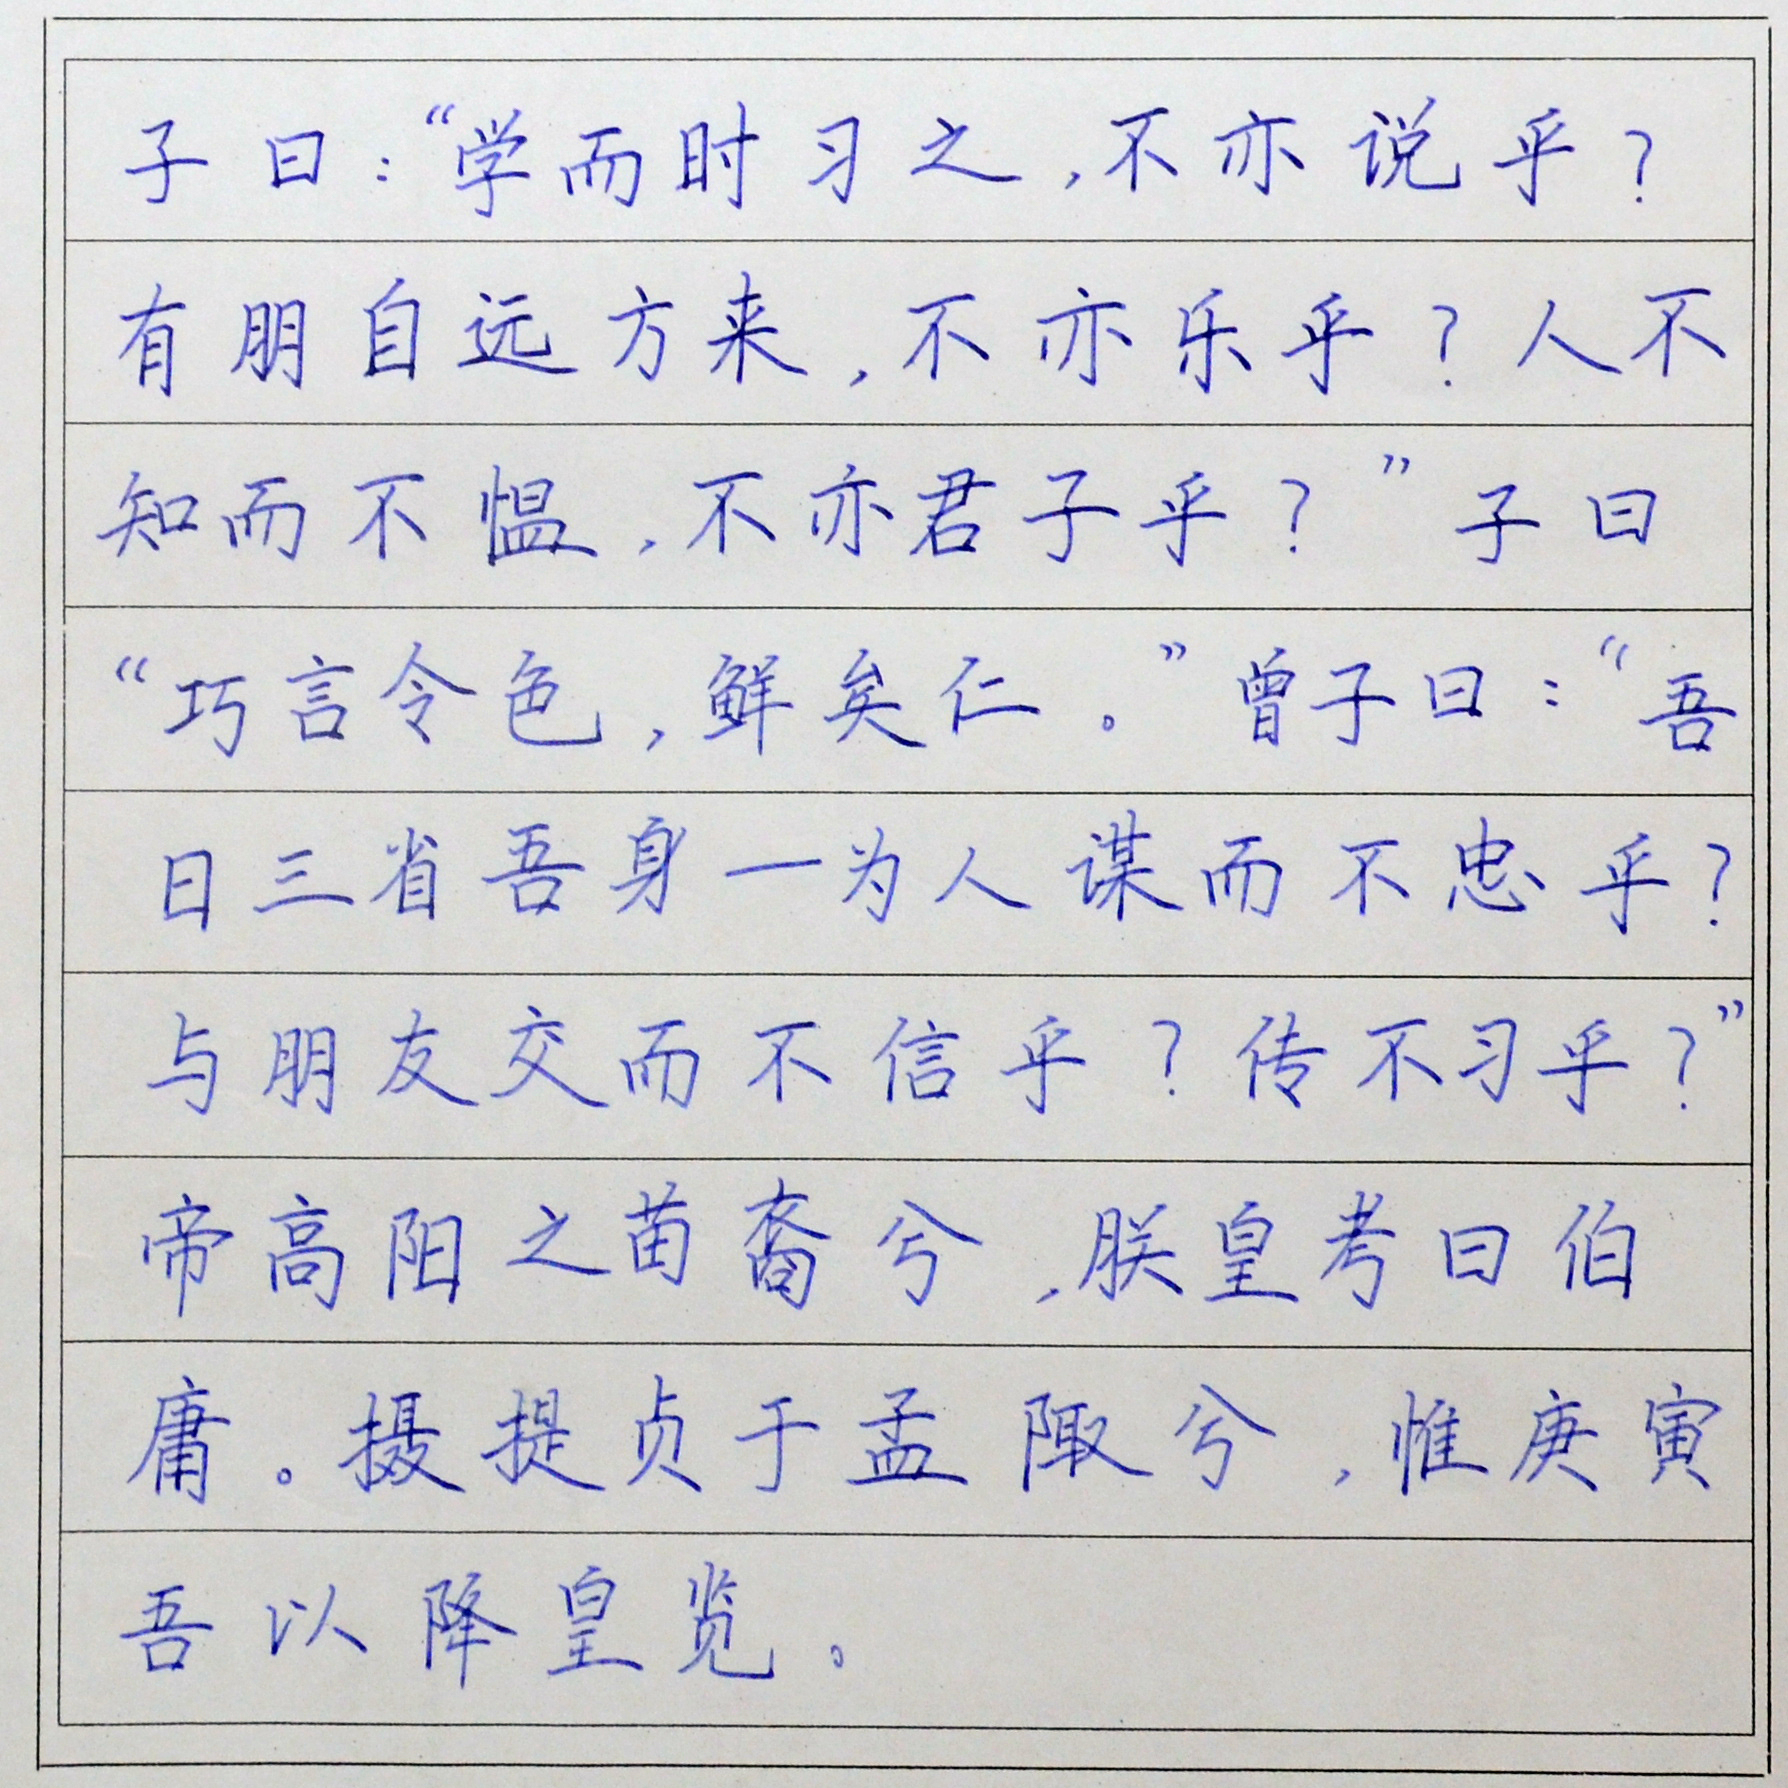 子曰：“学而时习之，不亦说乎？
有朋自远方来，不亦乐乎？人不
知而不愠，不亦君子乎？”子曰
“巧言令色，鲜矣仁。”曾子曰：“吾
日三省吾身—为人谋而不忠乎？
与朋友交而不信乎？传不习乎？”
帝高阳之苗裔兮，朕皇考曰伯
庸。摄提贞于孟陬兮，惟庚寅
吾以降皇览。